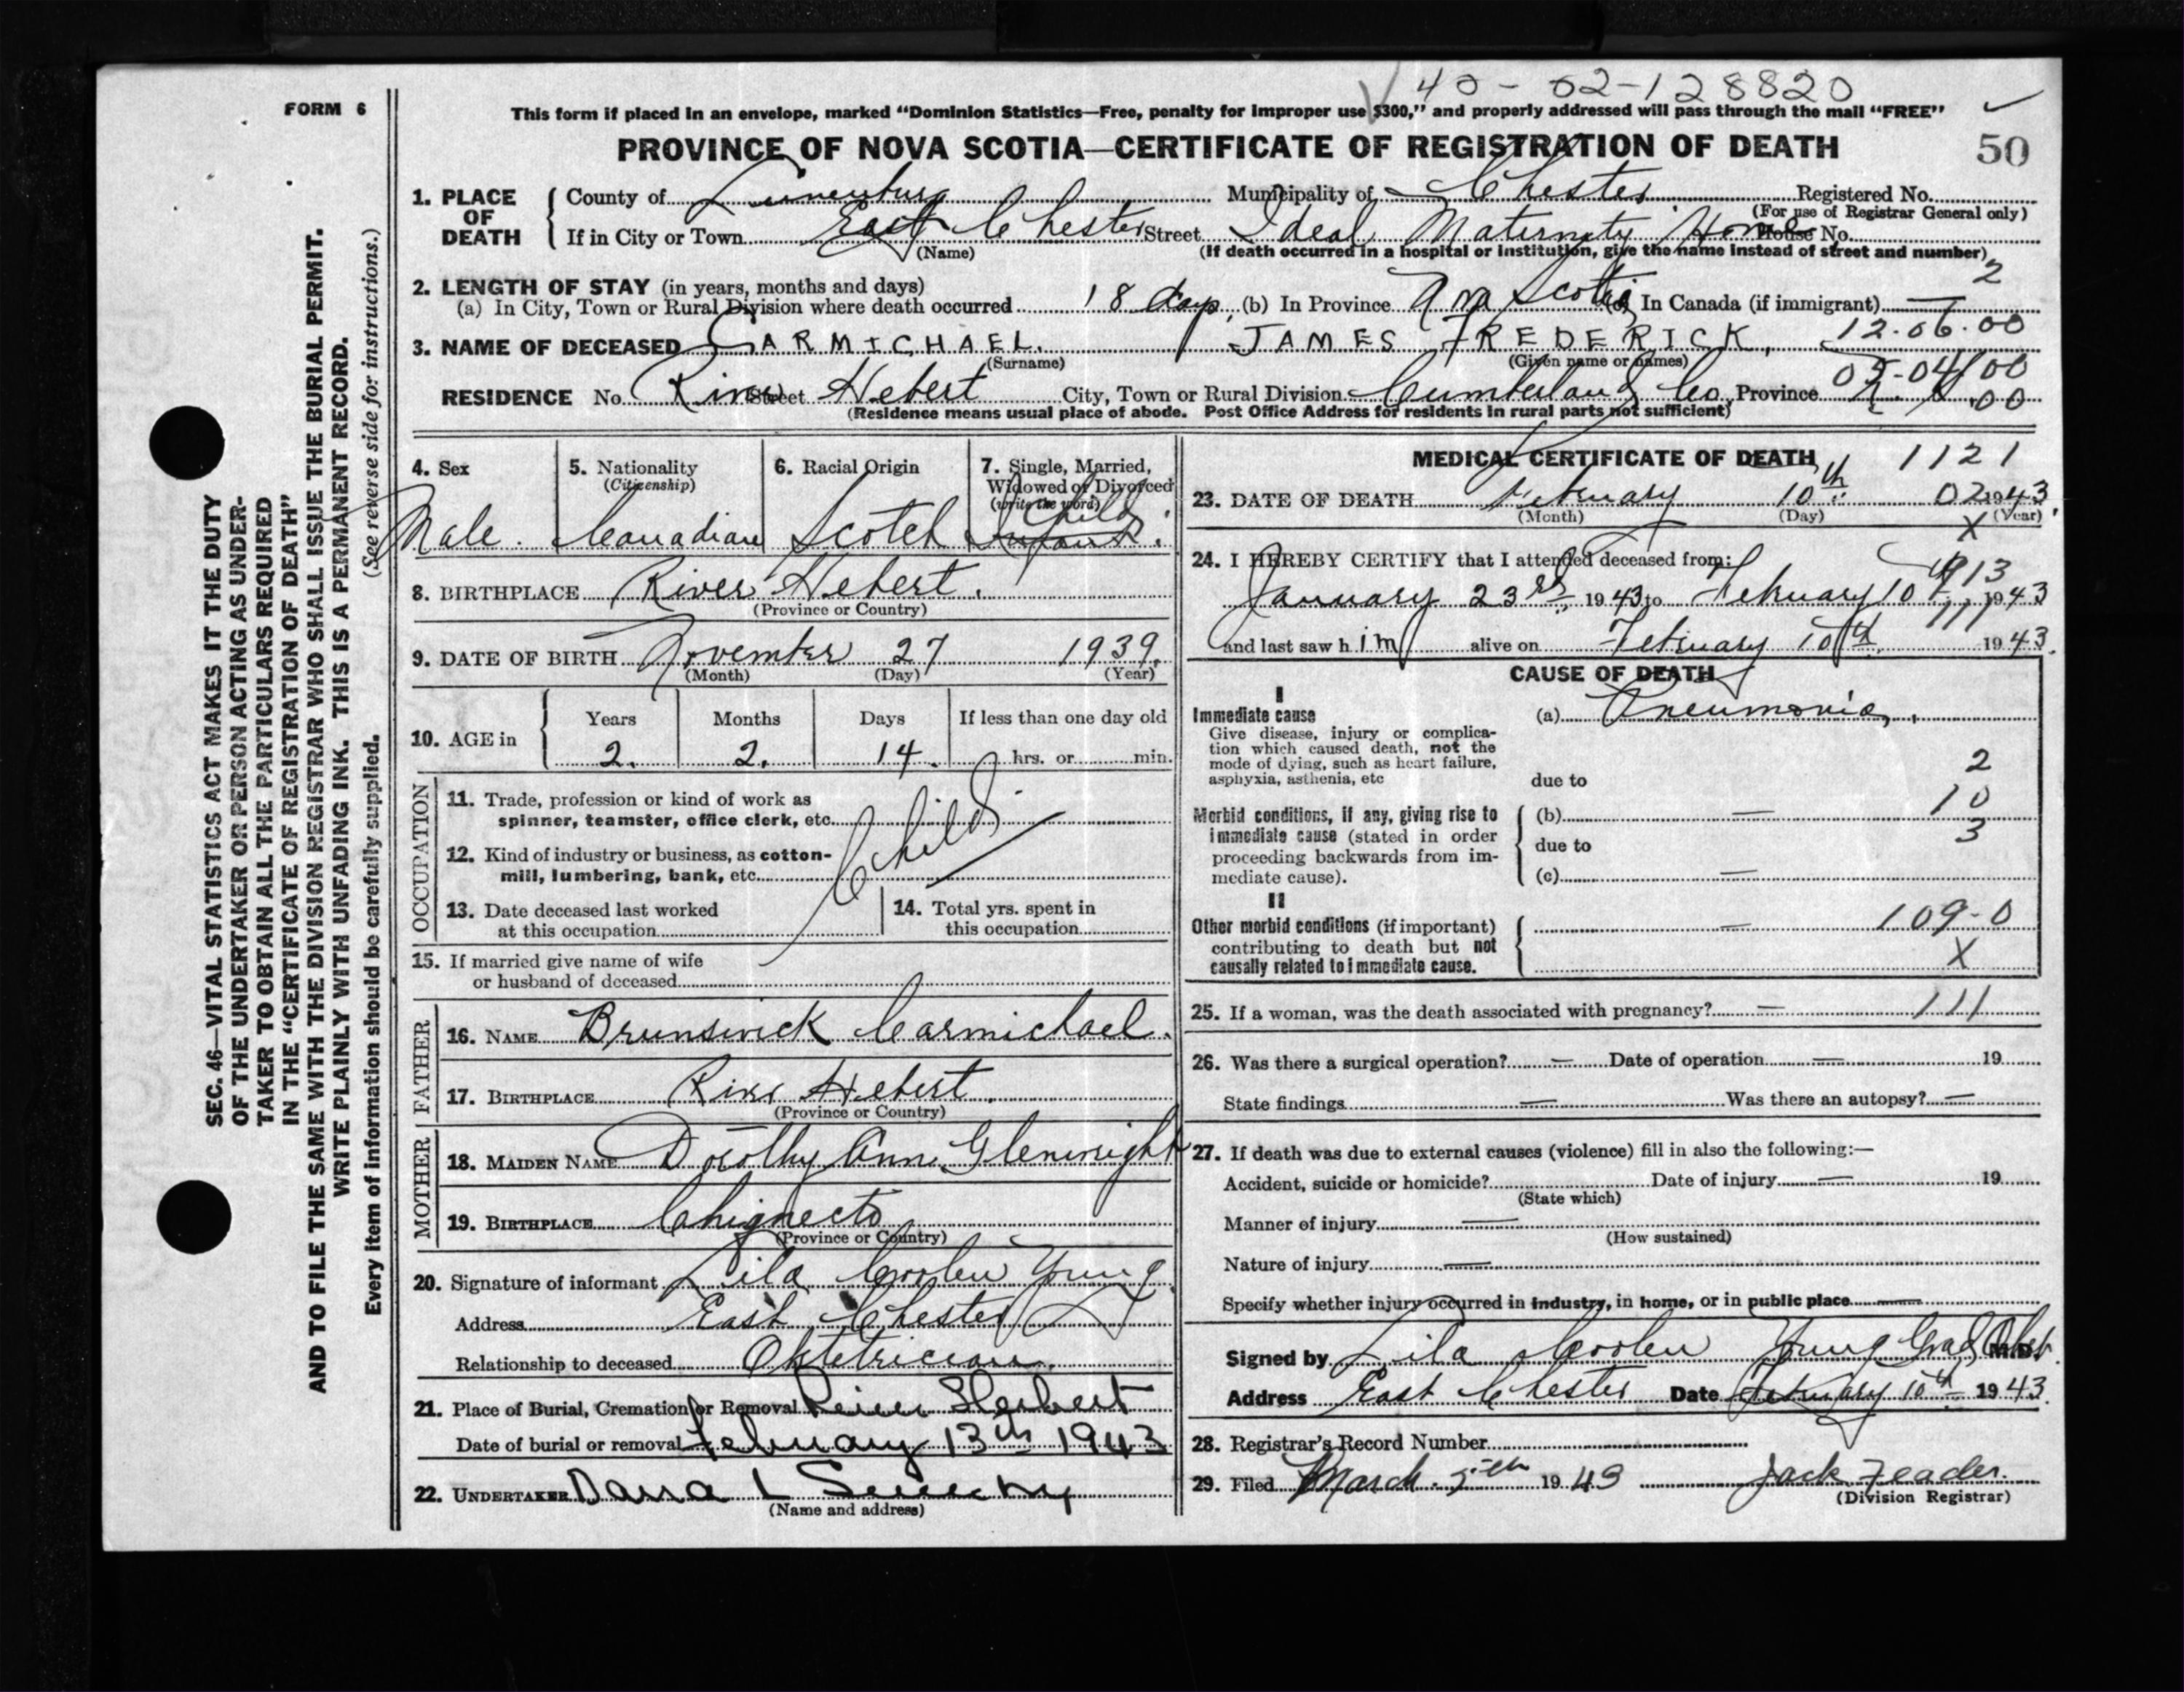 40-02-128820
FORM 6
This form if placed in an envelope, marked "Dominion Statistics—Free, penalty for improper use $300," and properly addressed will pass through the mail "FREE"
PROVINCE OF NOVA SCOTIA—CERTIFICATE OF REGISTRATION OF DEATH 50
1. PLACE OF DEATH County of Lunenburg Municipality of Chester Registered No.
(For use of Registrar General only)
If in City or Town East Chester Street Ideal Maternity Home House No.
(Name) (If death occurred in a hospital or institution, give the name instead of street and number)
2. LENGTH OF STAY (in years, months and days) 2
(a) In City, Town or Rural Division where death occurred 18 days (b) In Province Nova Scotia (c) In Canada (if immigrant) —
3. NAME OF DECEASED CARMICHAEL. JAMES FREDERICK, 12-06-00
(Surname) (Given name or names)
05-04/00
RESIDENCE No. River Street Hebert City, Town or Rural Division Cumberland Co. Province N. S. 00
(Residence means usual place of abode. Post Office Address for residents in rural parts not sufficient)
SEC. 46—VITAL STATISTICS ACT MAKES IT THE DUTY
OF THE UNDERTAKER OR PERSON ACTING AS UNDER-
TAKER TO OBTAIN ALL THE PARTICULARS REQUIRED
IN THE "CERTIFICATE OF REGISTRATION OF DEATH"
AND TO FILE THE SAME WITH THE DIVISION REGISTRAR WHO SHALL ISSUE THE BURIAL PERMIT.
WRITE PLAINLY WITH UNFADING INK. THIS IS A PERMANENT RECORD.
Every item of information should be carefully supplied. (See reverse side for instructions.)
4. Sex 5. Nationality 6. Racial Origin 7. Single, Married,
(Citizenship) Widowed or Divorced
(write the word)
Child
Male. Canadian Scotch Infant.
8. BIRTHPLACE River Hebert.
(Province or Country)
9. DATE OF BIRTH November 27 1939.
(Month) (Day) (Year)
10. AGE in Years Months Days If less than one day old
2. 2. 14. hrs. or min.
OCCUPATION
11. Trade, profession or kind of work as
spinner, teamster, office clerk, etc.
Child
12. Kind of industry or business, as cotton-
mill, lumbering, bank, etc.
13. Date deceased last worked 14. Total yrs. spent in
at this occupation this occupation
15. If married give name of wife
or husband of deceased
FATHER
16. NAME Brunswick Carmichael.
17. BIRTHPLACE River Hebert.
(Province or Country)
MOTHER
18. MAIDEN NAME Dorothy Anne Glenwright
19. BIRTHPLACE Chignecto
(Province or Country)
20. Signature of informant Lila Coolen Young
Address East Chester
Relationship to deceased Obstetrician.
21. Place of Burial, Cremation or Removal River Herbert
Date of burial or removal February 13th 1943
22. UNDERTAKER
(Name and address)
MEDICAL CERTIFICATE OF DEATH 1121
23. DATE OF DEATH February 10th 02 1943.
(Month) (Day) (Year)
X
24. I HEREBY CERTIFY that I attended deceased from:
913
January 23rd, 1943 to February 10th, 1943
111
and last saw him alive on February 10th 1943.
CAUSE OF DEATH
I
Immediate cause (a) Pneumonia,
Give disease, injury or complica-
tion which caused death, not the
mode of dying, such as heart failure,
asphyxia, asthenia, etc due to 2
Morbid conditions, if any, giving rise to (b) — 10
immediate cause (stated in order due to 3
proceeding backwards from im-
mediate cause). (c) —
II
Other morbid conditions (if important) — 109-0
contributing to death but not X
causally related to immediate cause.
25. If a woman, was the death associated with pregnancy? — 111
26. Was there a surgical operation? — Date of operation — 19
State findings — Was there an autopsy? —
27. If death was due to external causes (violence) fill in also the following:—
Accident, suicide or homicide? Date of injury — 19
(State which)
Manner of injury —
(How sustained)
Nature of injury —
Specify whether injury occurred in industry, in home, or in public place —
Signed by Lila Coolen Young Grad. Obst. M.D.
Address East Chester Date February 10th 1943.
28. Registrar's Record Number
29. Filed March 5th 1943 Jack Feader.
(Division Registrar)